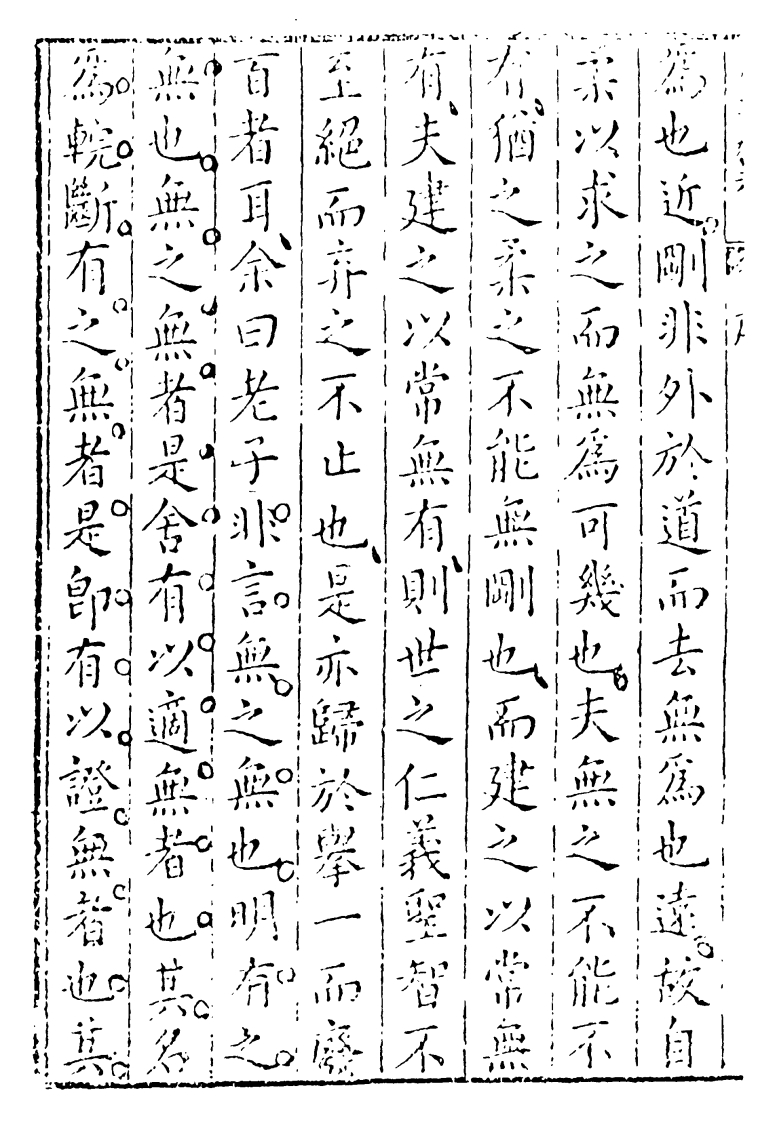 為也近剛非外於道而去無為也遠故自
柔以求之而無為可幾也夫無之不能不
有猶之柔之不能無剛也而建之以常無
有夫建之以常無有則世之仁義聖智不
至絕而弃之不止也是亦歸於舉一而廢
百者耳余曰老子非言無之無也明有之
無也無之無者是舍有以適無者也其名
為輐斷有之無者是卽有以證無者也其